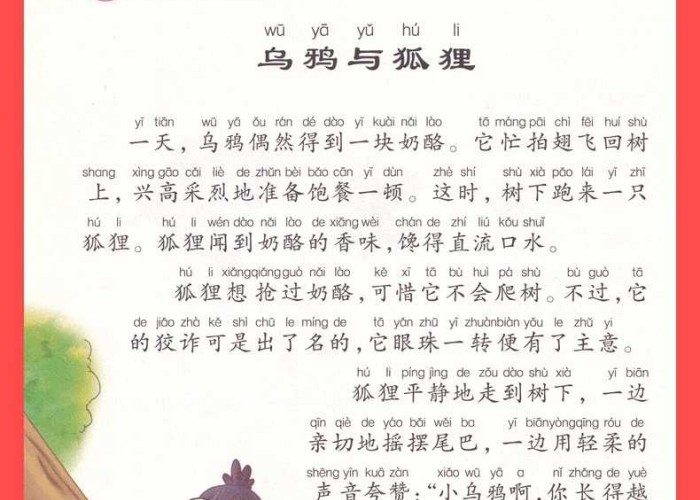 wū yā yǔ hú li
乌鸦与狐狸
yī tiān wū yā ǒu rán dé dào yī kuài nǎi lào tā máng pāi chì fēi huí shù
一天，乌鸦偶然得到一块奶酪。它忙拍翅飞回树
shang xìng gāo cǎi liè de zhǔn bèi bǎo cān yī dùn zhè shí shù xià pǎo lái yī zhī
上，兴高采烈地准备饱餐一顿。这时，树下跑来一只
hú li hú li wén dào nǎi lào de xiāng wèi chán de zhí liú kǒu shuǐ
狐狸。狐狸闻到奶酪的香味，馋得直流口水。
hú li xiǎng qiǎng guò nǎi lào kě xī tā bù huì pá shù bù guò tā
狐狸想抢过奶酪，可惜它不会爬树。不过，它
de jiǎo zhà kě shì chū le míng de tā yǎn zhū yī zhuàn biàn yǒu le zhǔ yi
的狡诈可是出了名的，它眼珠一转便有了主意。
hú li píng jìng de zǒu dào shù xià yī biān
狐狸平静地走到树下，一边
qīn qiè de yáo bǎi wěi ba yī biān yòng qīng róu de
亲切地摇摆尾巴，一边用轻柔的
shēng yīn kuā zàn xiǎo wū yā a nǐ zhǎng de yuè
声音夸赞：“小乌鸦啊，你长得越